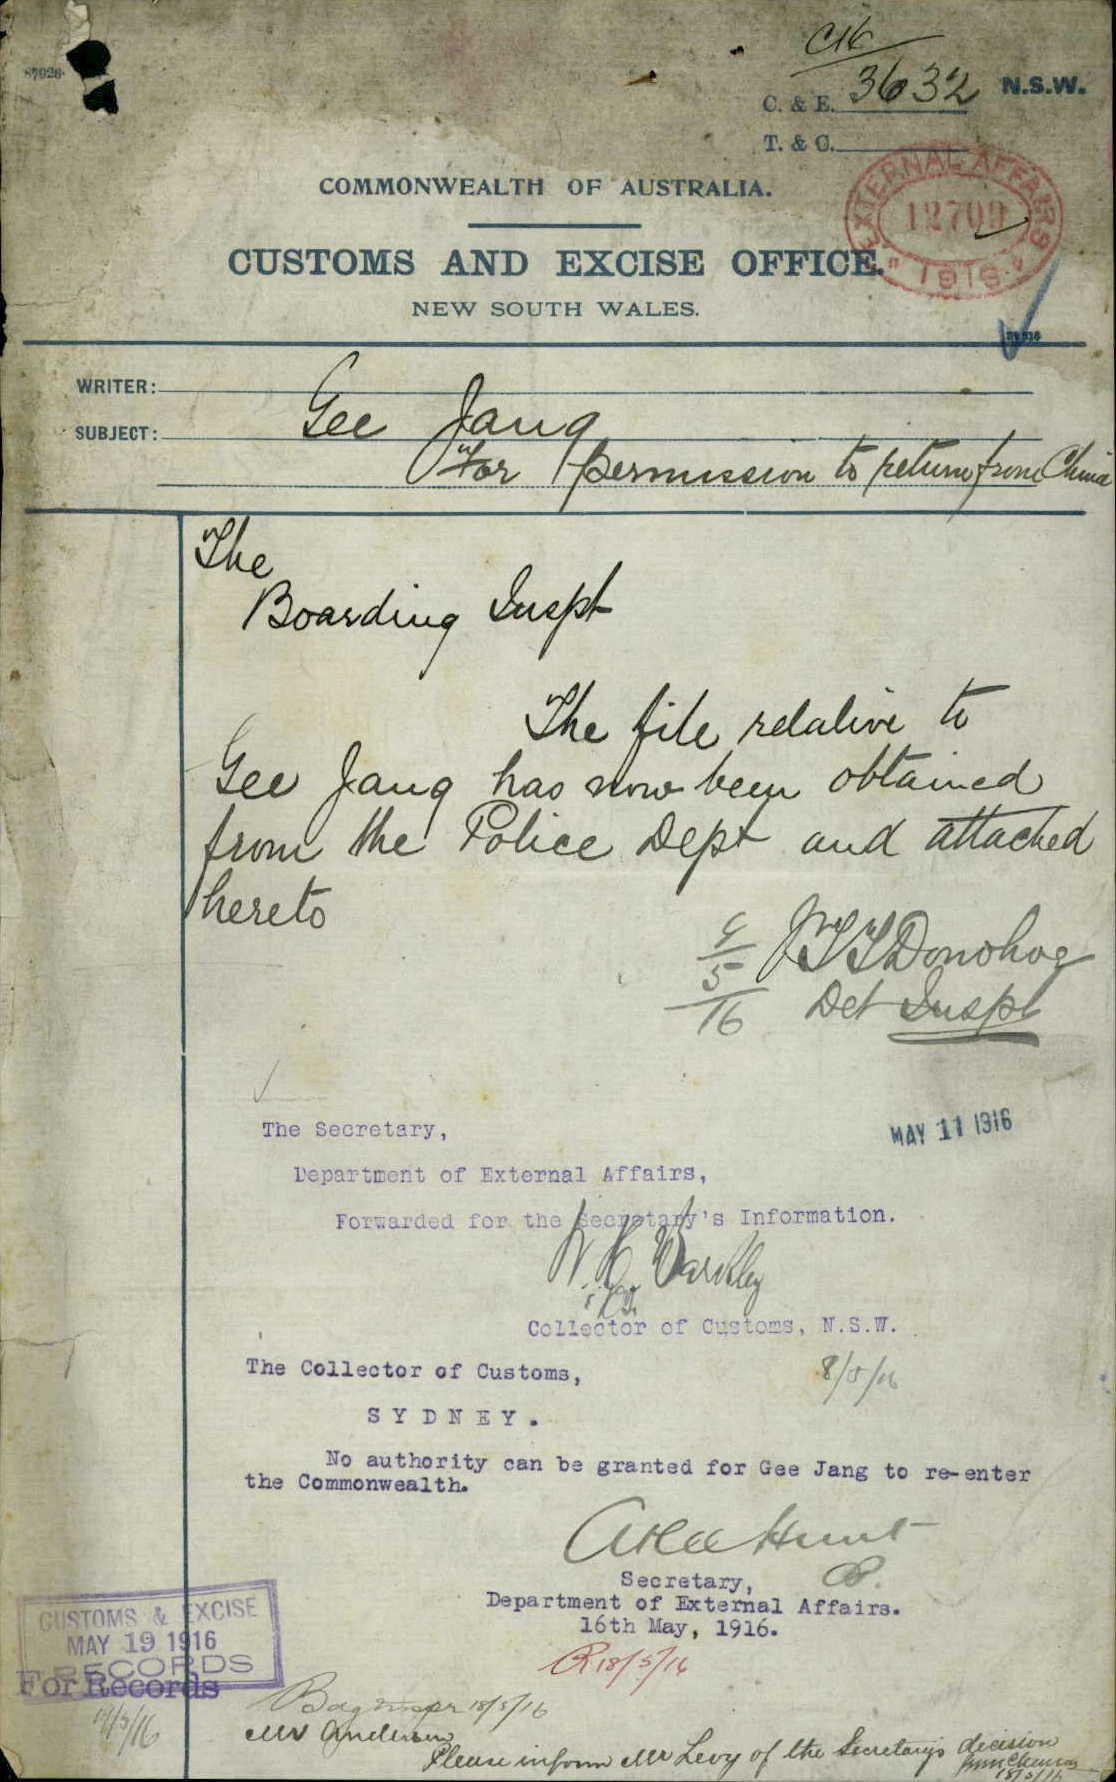 87926
C16
C. & E. 3632 N.S.W.
T. & C.
EXTERNAL AFFAIRS
12709
1916
COMMONWEALTH OF AUSTRALIA.
CUSTOMS AND EXCISE OFFICE.
NEW SOUTH WALES.
WRITER:
SUBJECT: Gee Jang
For permission to return from China
The
Boarding Inspt
The file relative to
Gee Jang has now been obtained
from the Police Dept and attached
hereto
Donohoe
5
16
Det Inspt
MAY 11 1916
The Secretary,
Department of External Affairs,
Forwarded for the Secretary's Information.
Barkley
Collector of Customs, N.S.W.
8/5/16
The Collector of Customs,
SYDNEY.
No authority can be granted for Gee Jang to re-enter
the Commonwealth.
Atlee Hunt
Secretary,
Department of External Affairs.
16th May, 1916.
R 18/5/16
CUSTOMS & EXCISE
MAY 19 1916
RECORDS
For Records
Bdg Inspr 18/5/16
Mr Anderson
Please inform Mr Levy of the Secretary's decision
18/5/16